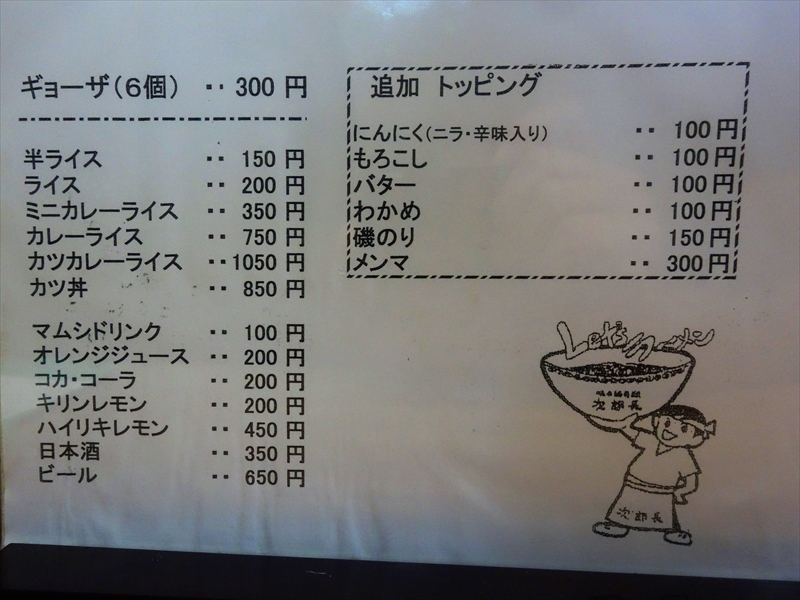 ギョーザ(6個) ‥ 300 円
半ライス ‥ 150 円
ライス ‥ 200 円
ミニカレーライス ‥ 350 円
カレーライス ‥ 750 円
カツカレーライス ‥1050 円
カツ丼 ‥ 850 円
マムシドリンク ‥ 100 円
オレンジジュース ‥ 200 円
コカ・コーラ ‥ 200 円
キリンレモン ‥ 200 円
ハイリキレモン ‥ 450 円
日本酒 ‥ 350 円
ビール ‥ 650 円
追加 トッピング
にんにく(ニラ・辛味入り) ‥ 100 円
もろこし ‥ 100 円
バター ‥ 100 円
わかめ ‥ 100 円
磯のり ‥ 150 円
メンマ ‥ 300 円
Let's ラーメン
次郎長
次郎長